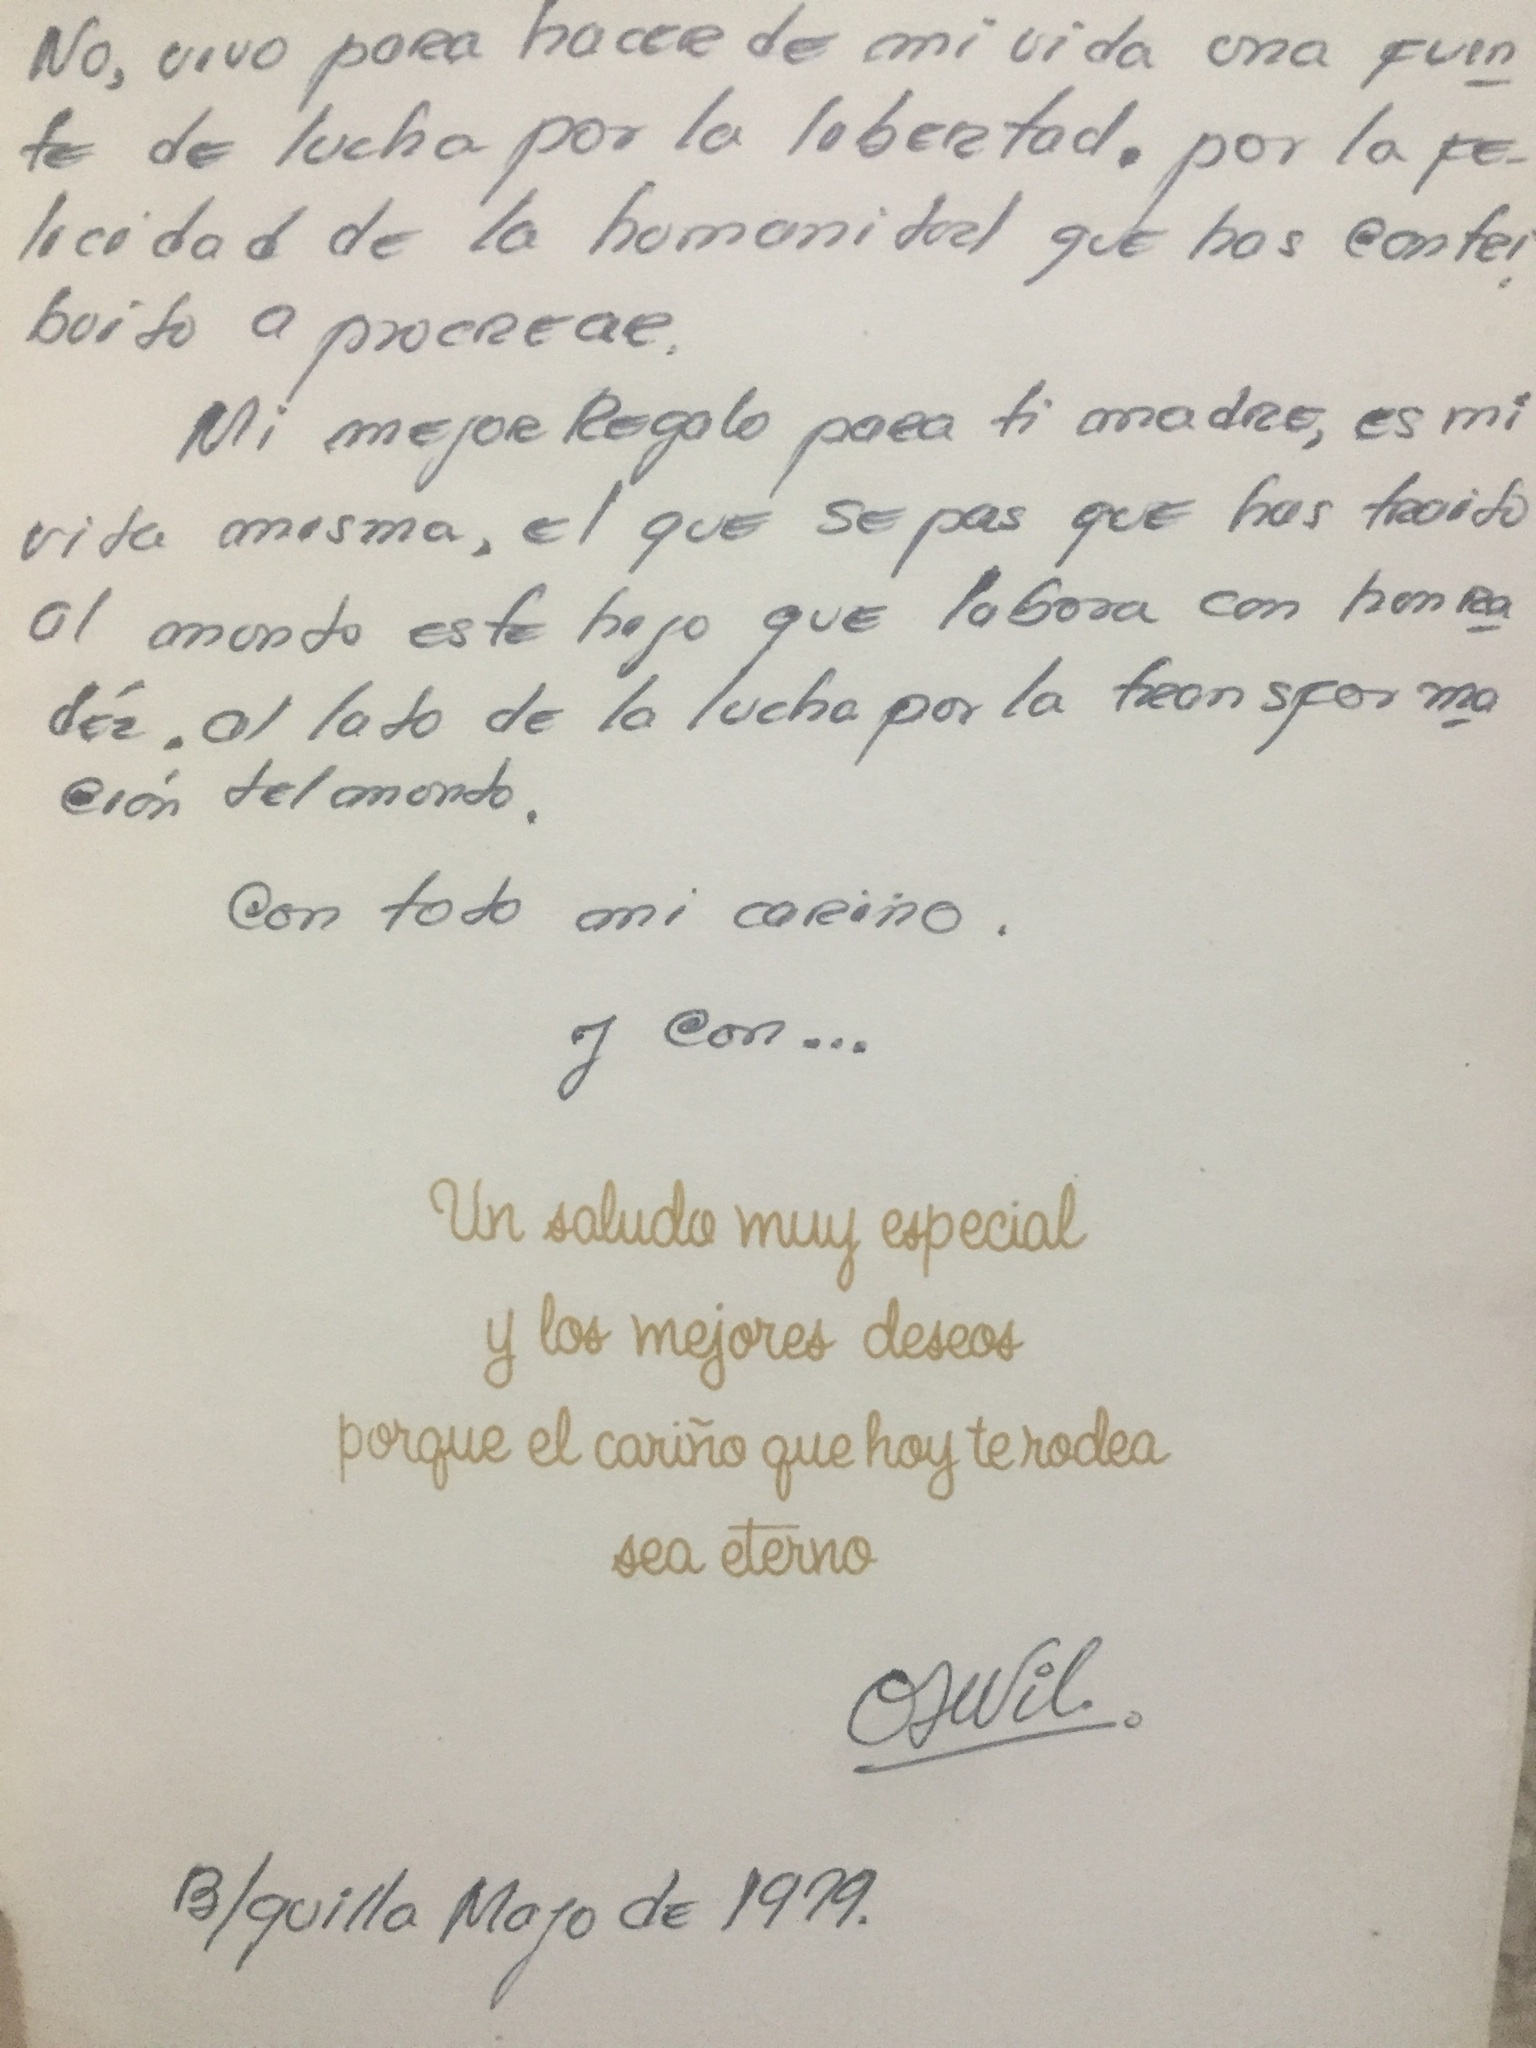 No, vivo para hacer de mi vida una fuen
te de lucha por la libertad. por la fe-
licidad de la humanidad que has contri
buido a procrear.
Mi mejor Regalo para ti madre, es mi
vida misma, el que sepas que has traido
al mundo este hijo que labora con honra
déz. al lado de la lucha por la transforma
ción del mundo.
Con todo mi cariño.
y con...
Un saludo muy especial
y los mejores deseos
porque el cariño que hoy te rodea
sea eterno
Oswil.
B/quilla Mayo de 1979.